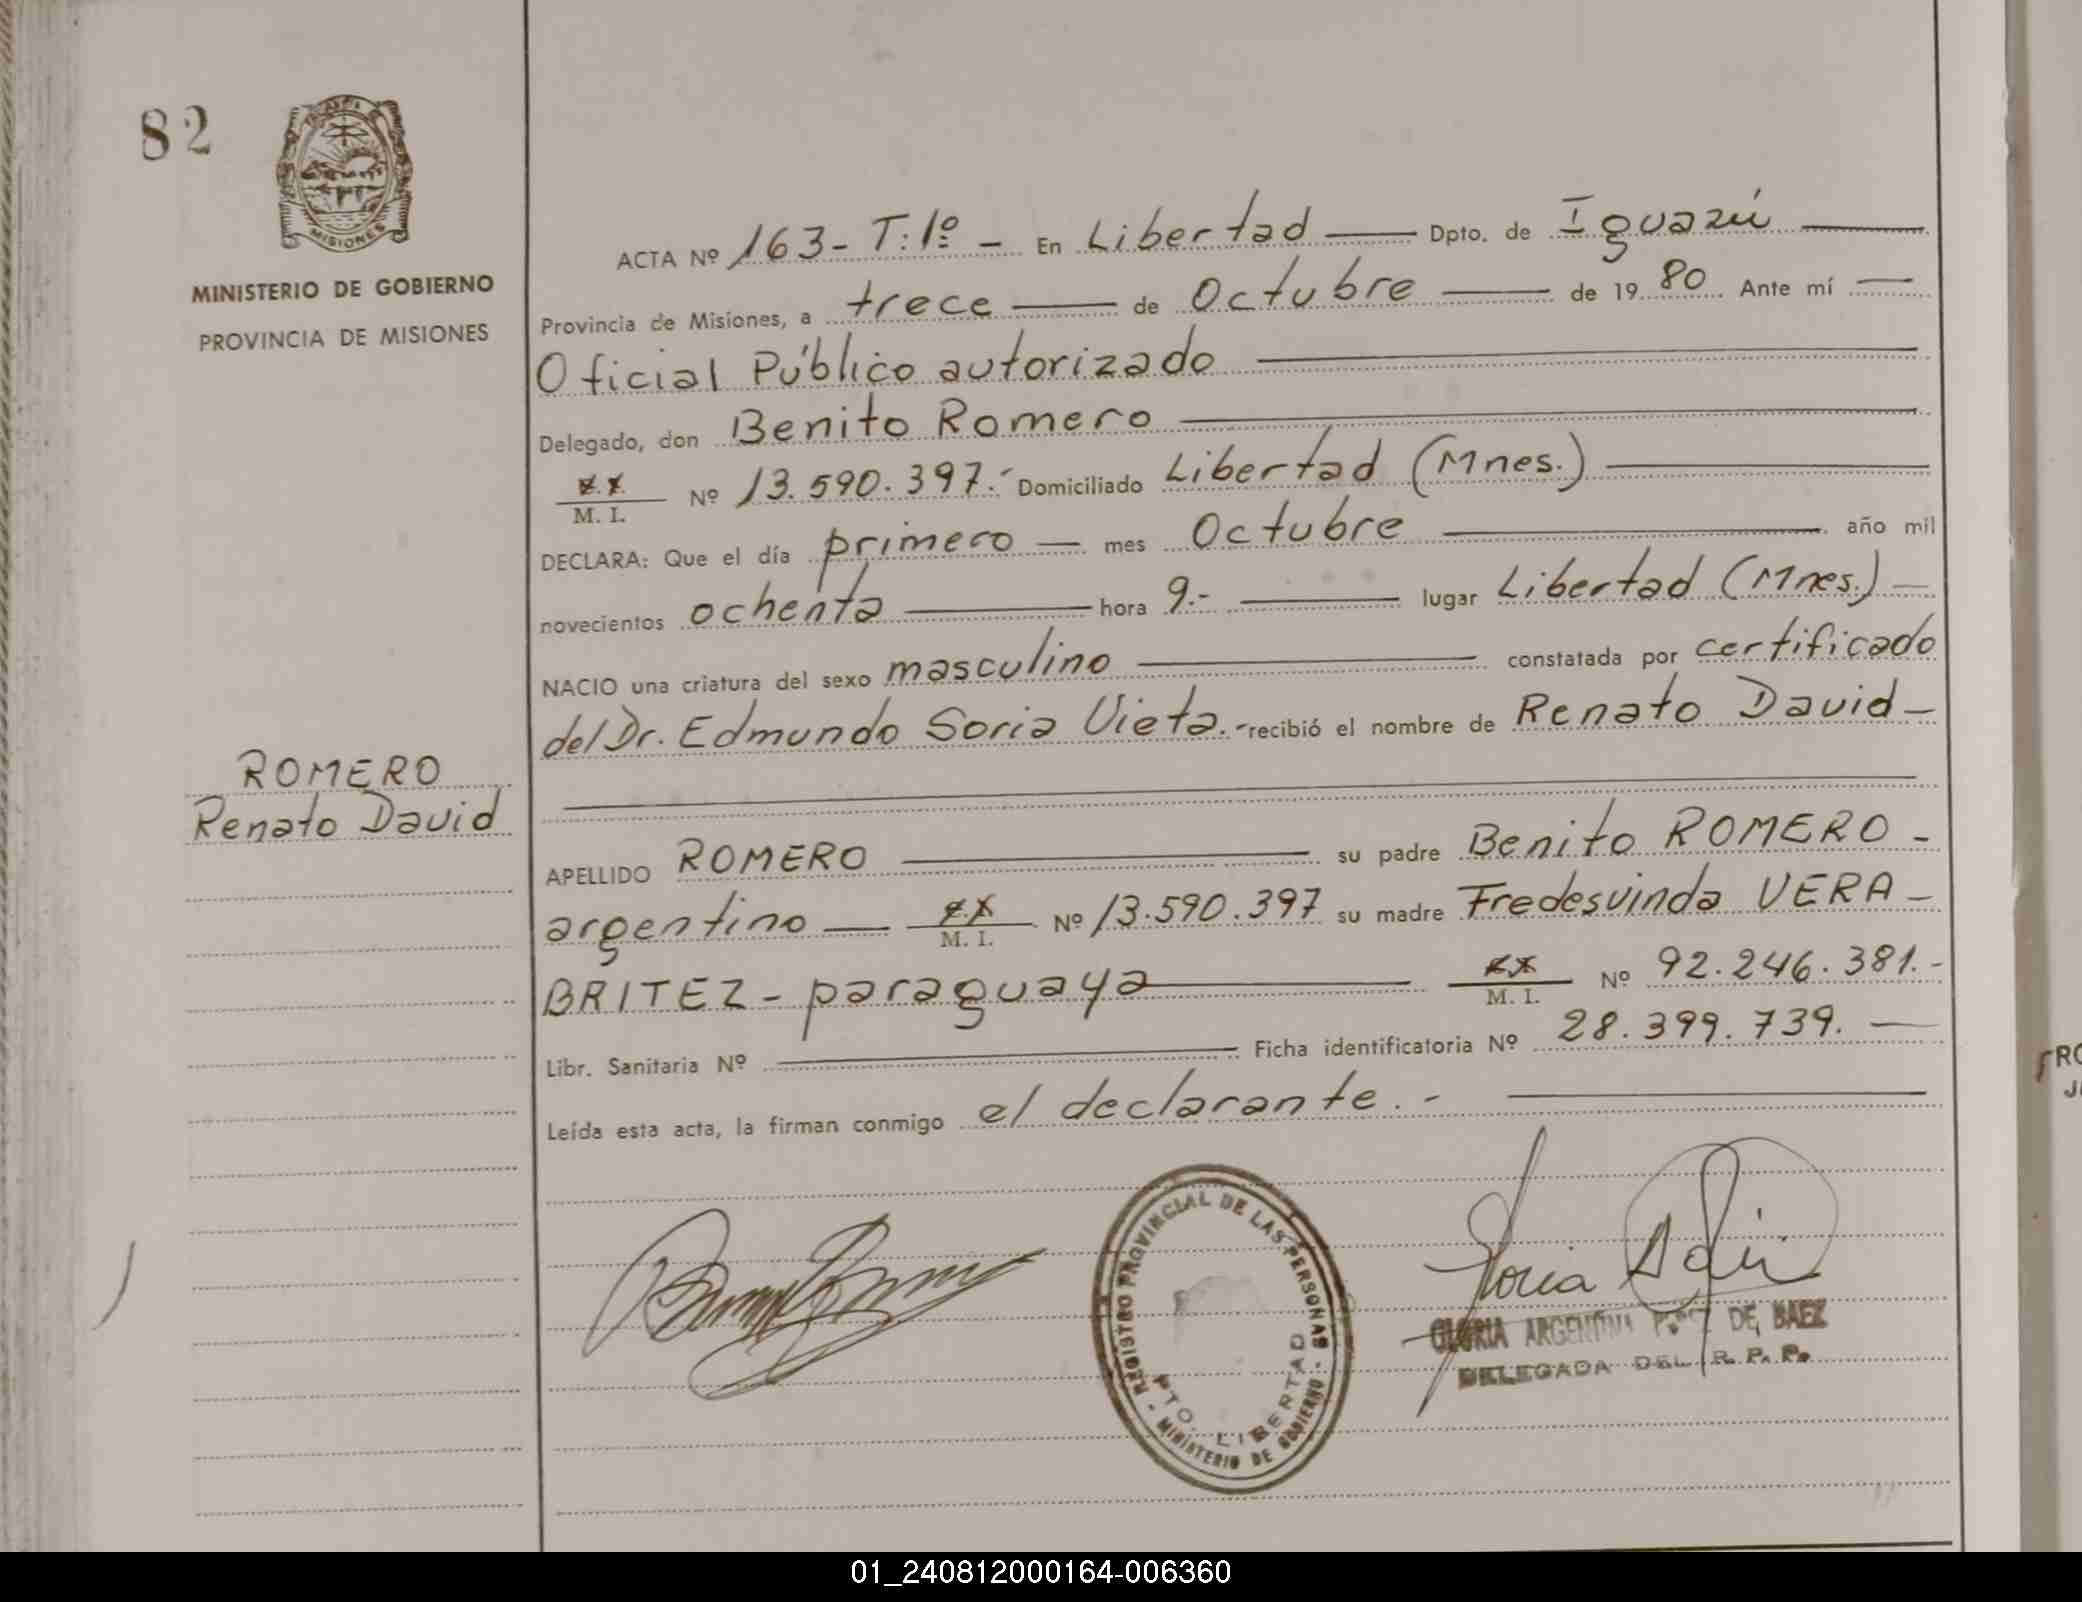 82
MISIONES
MINISTERIO DE GOBIERNO
PROVINCIA DE MISIONES
ROMERO
Renato David
ACTA Nº 163- T:1º - En Libertad Dpto. de Iguazú
Provincia de Misiones, a trece de Octubre de 1980 Ante mí
Oficial Público autorizado
Delegado, don Benito Romero
M. I. Nº 13.590.397.- Domiciliado Libertad (Mnes.)
DECLARA: Que el día primero mes Octubre año mil
novecientos ochenta hora 9.- lugar Libertad (Mnes.)
NACIO una criatura del sexo masculino constatada por certificado
del Dr. Edmundo Soria Vieta.- recibió el nombre de Renato David
APELLIDO ROMERO su padre Benito ROMERO -
argentino M. I. Nº 13.590.397 su madre Fredesvinda VERA -
BRITEZ - paraguaya M. I. Nº 92.246.381.-
Libr. Sanitaria Nº Ficha identificatoria Nº 28.399.739.
Leída esta acta, la firman conmigo el declarante.-
REGISTRO PROVINCIAL DE LAS PERSONAS
PTO. LIBERTAD
- MINISTERIO DE GOBIERNO -
GLORIA ARGENTINA DE BAEZ
DELEGADA DEL R. P. P.
RO
01_240812000164-006360